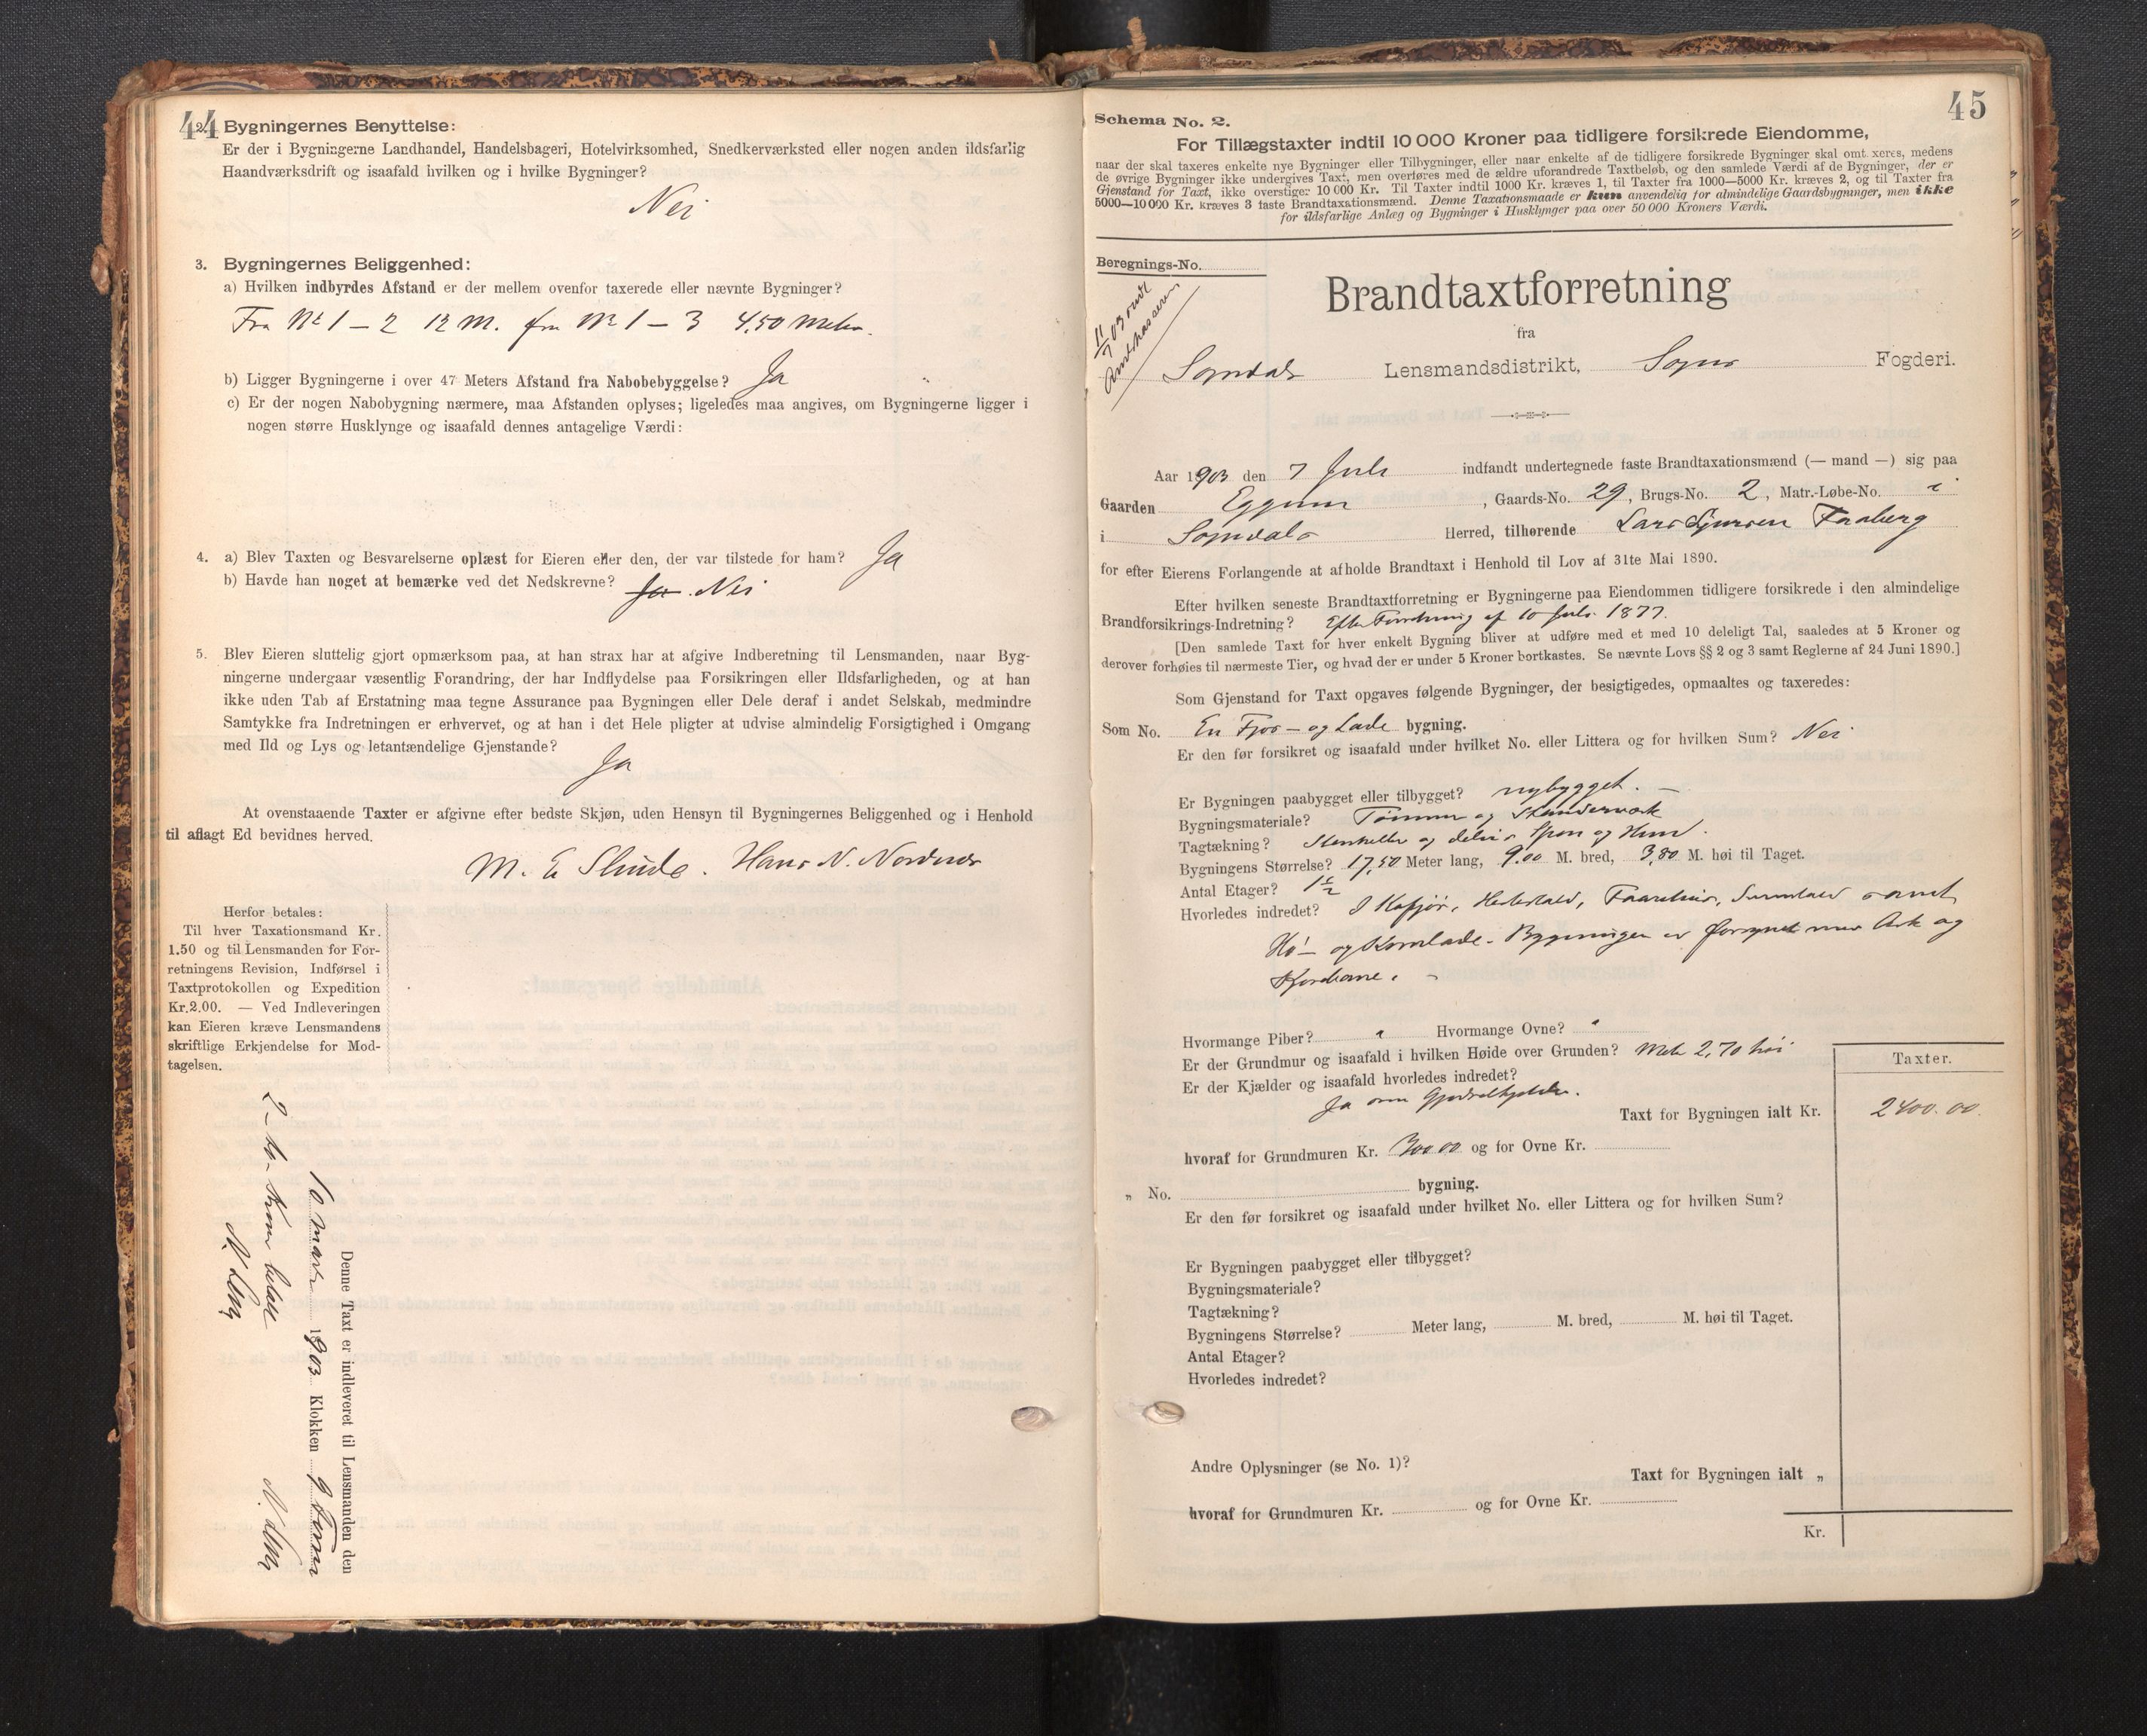 44
2. Bygningernes Benyttelse:
Er der i Bygningerne Landhandel, Handelsbageri, Hotelvirksomhed, Snedkerværksted eller nogen anden ildsfarlig
Haandværksdrift og isaafald hvilken og i hvilke Bygninger?
Nei
3. Bygningernes Beliggenhed:
a) Hvilken indbyrdes Afstand er der mellem ovenfor taxerede eller nævnte Bygninger?
Fra No 1 – 2 12 M. fra No 1 – 3 4,50 Meter.
b) Ligger Bygningerne i over 47 Meters Afstand fra Nabobebyggelse? Ja
c) Er der nogen Nabobygning nærmere, maa Afstanden oplyses; ligeledes maa angives, om Bygningerne ligger i
nogen større Husklynge og isaafald dennes antagelige Værdi:
4. a) Blev Taxten og Besvarelserne oplæst for Eieren eller den, der var tilstede for ham? Ja
b) Havde han noget at bemærke ved det Nedskrevne? Ja. Nei
5. Blev Eieren sluttelig gjort opmærksom paa, at han strax har at afgive Indberetning til Lensmanden, naar Byg-
ningerne undergaar væsentlig Forandring, der har Indflydelse paa Forsikringen eller Ildsfarligheden, og at han
ikke uden Tab af Erstatning maa tegne Assurance paa Bygningen eller Dele deraf i andet Selskab, medmindre
Samtykke fra Indretningen er erhvervet, og at han i det Hele pligter at udvise almindelig Forsigtighed i Omgang
med Ild og Lys og letantændelige Gjenstande?
Ja
At ovenstaaende Taxter er afgivne efter bedste Skjøn, uden Hensyn til Bygningernes Beliggenhed og i Henhold
til aflagt Ed bevidnes herved.
M. E Slinde. Hans N. Nordnæs
Herfor betales:
Til hver Taxationsmand Kr.
1.50 og til Lensmanden for For-
retningens Revision, Indførsel i
Taxtprotokollen og Expedition
Kr. 2.00. — Ved Indleveringen
kan Eieren kræve Lensmandens
skriftlige Erkjendelse for Mod-
tagelsen.
Denne Taxt er indleveret til Lensmanden den
10 marts 1903 Klokken 9 Form
2 – to – Kroner betalt
45
Schema No. 2.
For Tillægstaxter indtil 10 000 Kroner paa tidligere forsikrede Eiendomme,
naar der skal taxeres enkelte nye Bygninger eller Tilbygninger, eller naar enkelte af de tidligere forsikrede Bygninger skal omt xeres, medens
de øvrige Bygninger ikke undergives Taxt, men overføres med de ældre uforandrede Taxtbeløb, og den samlede Værdi af de Bygninger, der er
Gjenstand for Taxt, ikke overstiger 10 000 Kr. Til Taxter indtil 1000 Kr. kræves 1, til Taxter fra 1000—5000 Kr. kræves 2, og til Taxter fra
5000—10 000 Kr. kræves 3 faste Brandtaxationsmænd. Denne Taxationsmaade er kun anvendelig for almindelige Gaardsbygninger, men ikke
for ildsfarlige Anlæg og Bygninger i Husklynger paa over 50 000 Kroners Værdi.
Beregnings-No.
Brandtaxtforretning
fra
Sogndals Lensmandsdistrikt, Sogns Fogderi.
Aar 1903 den 7 Juli indfandt undertegnede faste Brandtaxationsmænd (— mand —) sig paa
Gaarden Eggum, Gaards-No. 29, Brugs-No. 2, Matr.-Løbe-No.
i Sogndals Herred, tilhørende Lars Sjursen Faaberg
for efter Eierens Forlangende at afholde Brandtaxt i Henhold til Lov af 31te Mai 1890.
Efter hvilken seneste Brandtaxtforretning er Bygningerne paa Eiendommen tidligere forsikrede i den almindelige
Brandforsikrings-Indretning? Efter Forretning af 10 Juli 1877.
[Den samlede Taxt for hver enkelt Bygning bliver at udføre med et med 10 deleligt Tal, saaledes at 5 Kroner og
derover forhøies til nærmeste Tier, og hvad der er under 5 Kroner bortkastes. Se nævnte Lovs §§ 2 og 3 samt Reglerne af 24 Juni 1890.]
Som Gjenstand for Taxt opgaves følgende Bygninger, der besigtigedes, opmaaltes og taxeredes:
Som No. En Fjøs – og Lade bygning.
Er den før forsikret og isaafald under hvilket No. eller Littera og for hvilken Sum? Nei
Er Bygningen paabygget eller tilbygget? nybygget. –
Bygningsmateriale? Tømmer og Stenderværk
Tagtækning? Stenheller og delvis Spon og Hun.
Bygningens Størrelse? 17,50 Meter lang, 9.00 M. bred, 3,80 M. høi til Taget.
Antal Etager? 1½
Hvorledes indredet? I Kofjøs, Hestestald, Faarehus, samt
Hø – og Kornlade. Bygningen er forsynet med Ark og
Kjørebane. –
Hvormange Piber? Hvormange Ovne?
Er der Grundmur og isaafald i hvilken Høide over Grunden? Meter 2,70 høi
Er der Kjælder og isaafald hvorledes indredet?
Ja som Gjødselkjelder.
Taxter.
Taxt for Bygningen ialt Kr. 2400.00.
hvoraf for Grundmuren Kr. 300 00 og for Ovne Kr.
„ No. bygning.
Er den før forsikret og isaafald under hvilket No. eller Littera og for hvilken Sum?
Er Bygningen paabygget eller tilbygget?
Bygningsmateriale?
Tagtækning?
Bygningens Størrelse? Meter lang, M. bred, M. høi til Taget.
Antal Etager?
Hvorledes indredet?
Andre Oplysninger (se No. 1)?
Taxt for Bygningen ialt „
hvoraf for Grundmuren Kr. og for Ovne Kr.
Kr.